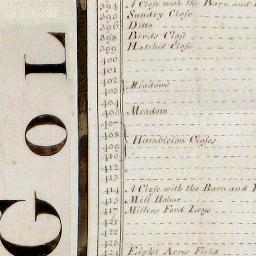 GOL
394 A Close with the Barn and
395 Sundry Close
396 Ditto
398 Birds Close
399 Hatchet Close
400
401
402
403 Meadows
404
405 Meadow
406
407
408
409 Humbleton Closes
410
411
412
413
414 A Close with the Barn and
415 Mill Holme
417 Millers Ford Leys
421
422
423
424 Eight Acres Field